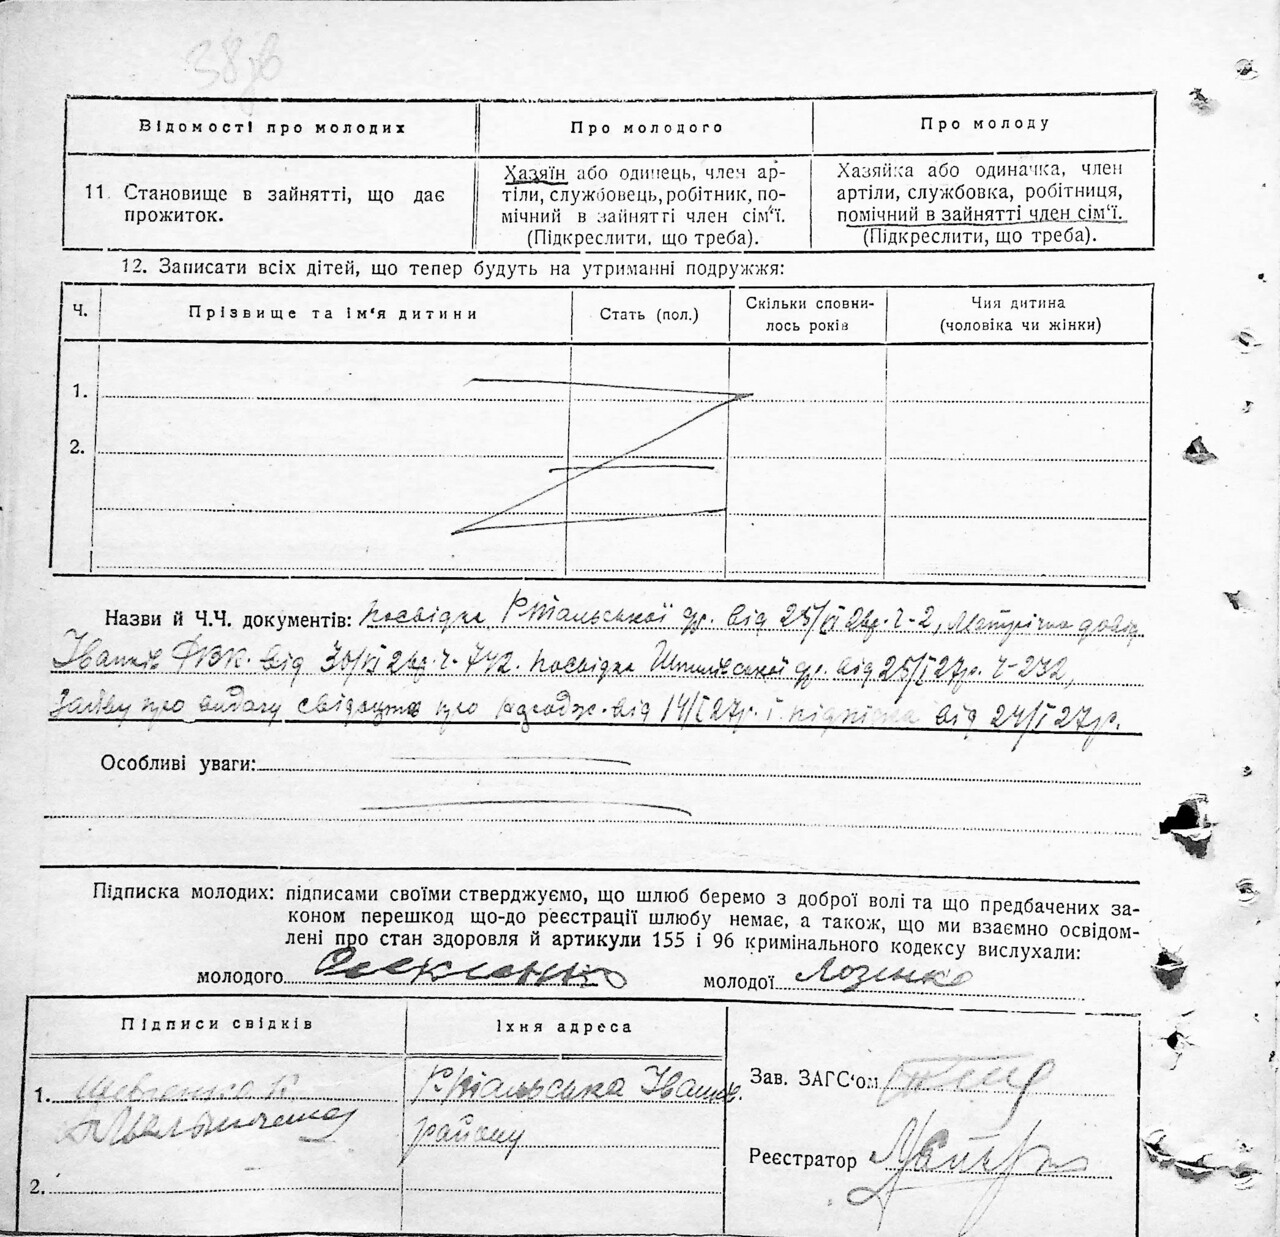 38зв
Відомості про молодих
Про молодого
Про молоду
11. Становище в зайнятті, що дає
прожиток.
Хазяїн або одинець, член ар-
тіли, службовець, робітник, по-
мічний в зайнятті член сім'ї.
(Підкреслити, що треба).
Хазяйка або одиначка, член
артіли, службовка, робітниця,
помічний в зайнятті член сім'ї.
(Підкреслити, що треба).
12. Записати всіх дітей, що тепер будуть на утриманні подружжя:
Ч.
Прізвище та ім'я дитини
Стать (пол.)
Скільки сповни-
лось років
Чия дитина
(чоловіка чи жінки)
1.
2.
Назви й Ч.Ч. документів: Посвідка від 25/ 26р. ч-2,
від 30/ 26р. ч-742. Посвідка від 25/І 27р. ч-232,
Заяву про видачу свідоцтв про від 14/І 27р. і підписка від 24/І 27р.
Особливі уваги:
Підписка молодих: підписами своїми стверджуємо, що шлюб беремо з доброї волі та що предбачених за-
коном перешкод що-до реєстрації шлюбу немає, а також, що ми взаємно освідом-
лені про стан здоровля й артикули 155 і 96 кримінального кодексу вислухали:
молодого
молодої Лозенко
Підписи свідків
Їхня адреса
1. Шевченко К
району
2.
Зав. ЗАГС'ом
Реєстратор